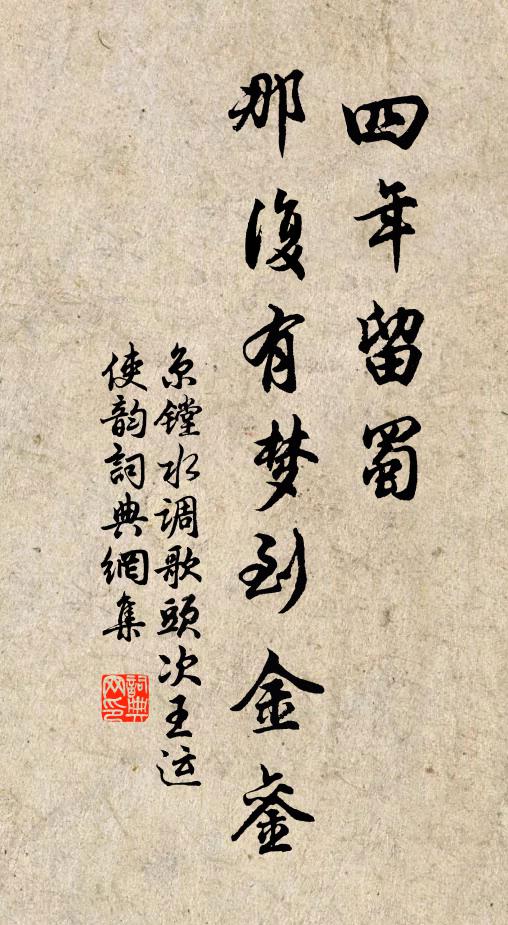 四年留蜀
那復有梦到金銮
京镗水调歌頭次王运
使韵詞典網集
詞典
网印